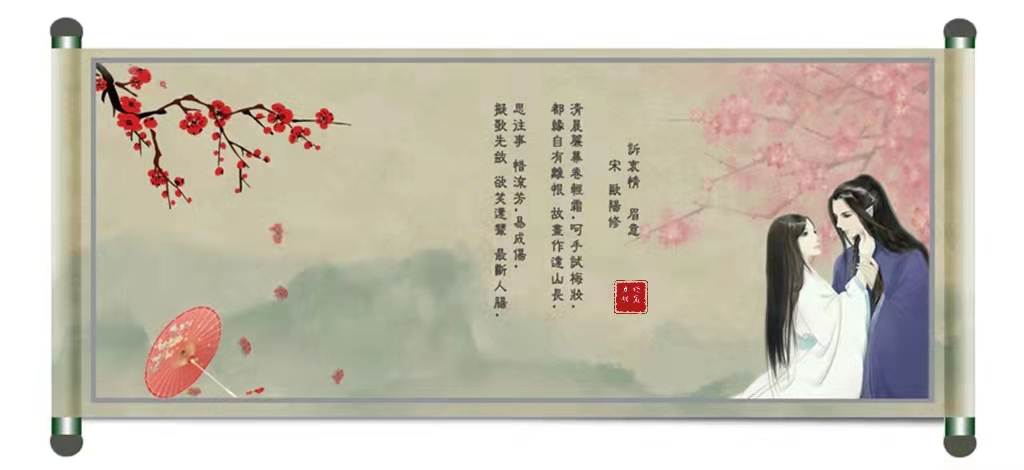 訴衷情 眉意
宋 歐陽修
清晨簾幕卷輕霜·呵手試梅妝·
都緣自有離恨 故畫作遠山長·
思往事 惜流芳·易成傷·
擬歌先斂 欲笑還顰 最斷人腸·